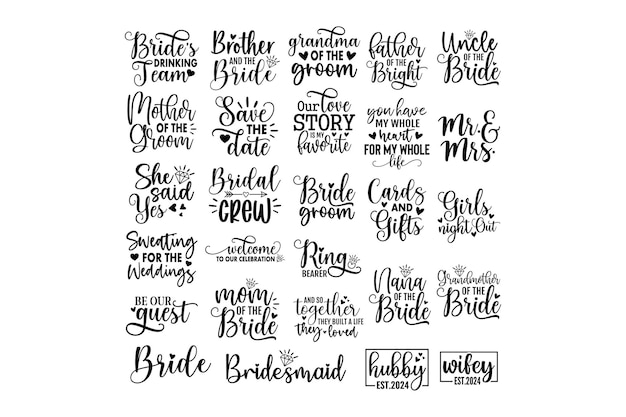 Bride's
DRINKING
Team
Brother
AND THE
Bride
grandma
OF THE
groom
father
OF THE
Bright
Uncle
OF THE
Bride
Mother
OF THE
Groom
Save
THE
date
Our love
STORY
IS MY
favorite
you have
MY WHOLE
heart
FOR MY WHOLE
life
Mr. &
Mrs.
She
said
Yes
Bridal
CREW
Bride
groom
Cards
AND
Gifts
Girls
night Out
Sweating
FOR THE
Weddings
welcome
TO OUR CELEBRATION
Ring
BEARER
Nana
OF THE
Bride
Grandmother
OF THE
Bride
BE OUR
guest
mom
OF THE
Bride
AND SO
together
THEY BUILT A LIFE
they loved
Bride
Bridesmaid
hubby
EST.2024
wifey
EST.2024